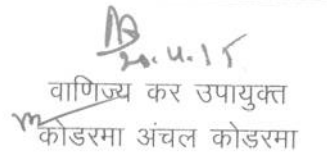 20.4.15
वाणिज्य कर उपायुक्त
कोडरमा अंचल कोडरमा